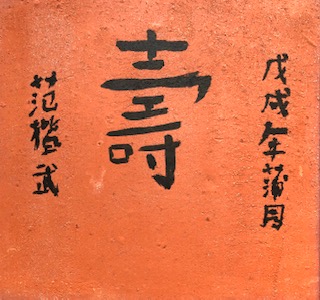 戊戌年蒲月
壽
范武